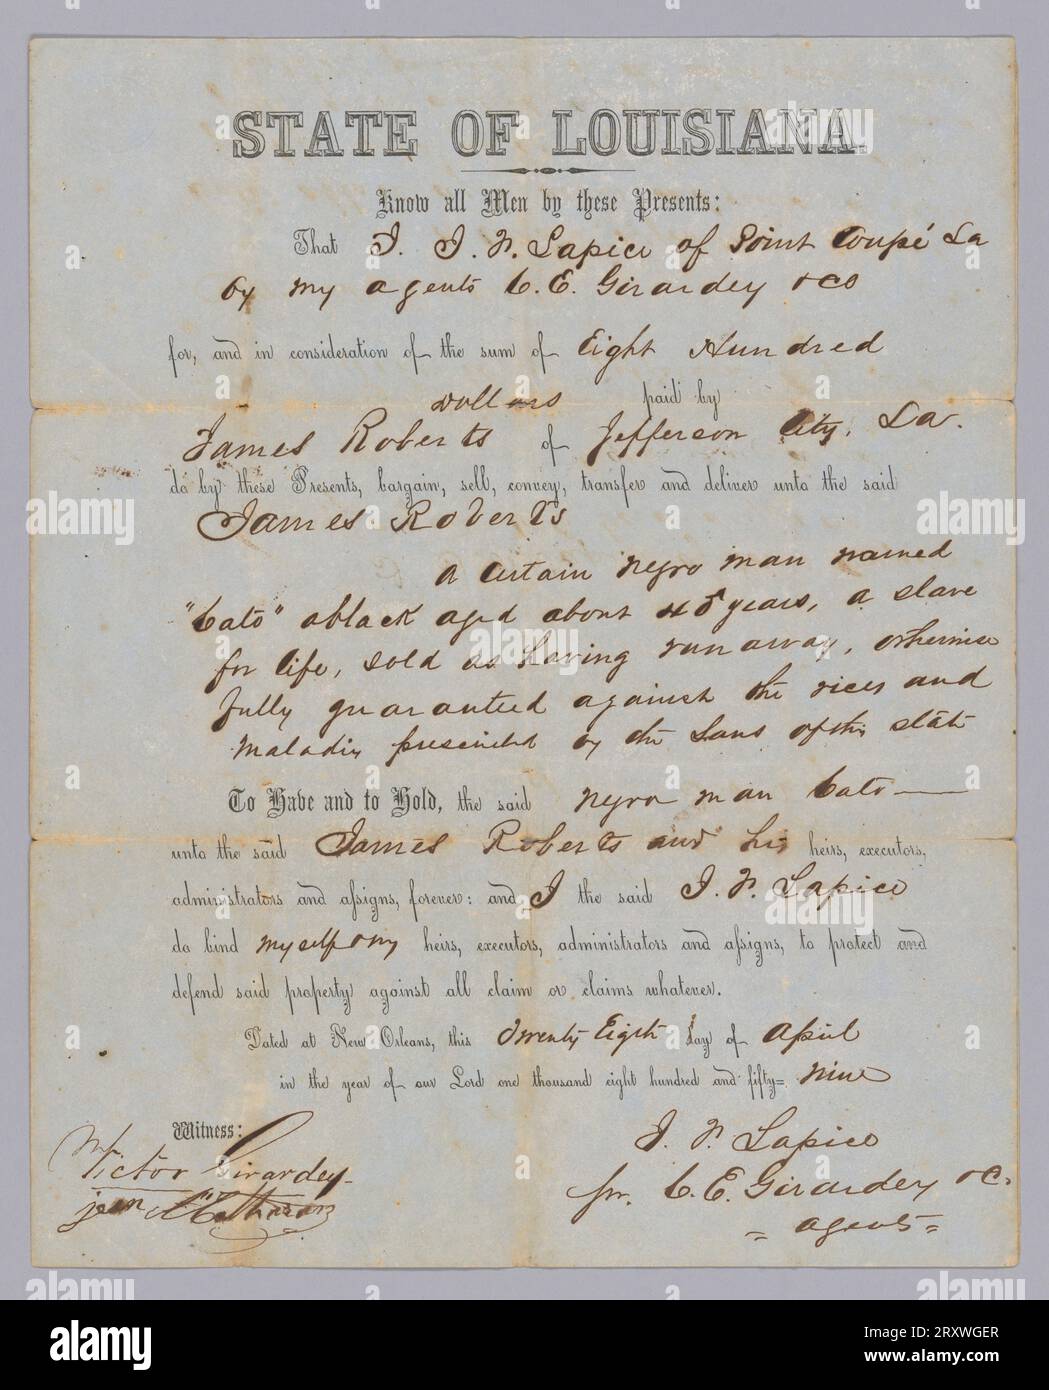 STATE OF LOUISIANA.
Know all Men by these Presents:
That I. J. N. Lapice of Point Coupé La
by my agents C. E. Girardey & Co
for, and in consideration of the sum of Eight Hundred
Dollars paid by
James Roberts of Jefferson City, La.
do by these Presents, bargain, sell, convey, transfer and deliver unto the said
James Roberts
a certain negro man named
"Cato" a black aged about 45 years, a slave
for life, sold as having run away, otherwise
fully guaranteed against the vices and
Maladies prescribed by the Laws of this state
To Have and to Hold, the said negro man Cato
unto the said James Roberts and his heirs, executors,
administrators and assigns, forever: and I the said J. N. Lapice
do bind myself & my heirs, executors, administrators and assigns, to protect and
defend said property against all claim or claims whatever.
Dated at New Orleans, this Twenty Eigth day of April
in the year of our Lord one thousand eight hundred and fifty= nine
Witness:
Victor Girardey
jean
J. N. Lapice
pr. C. E. Girardey & C.
= agents =
alamy
Image ID: 2RXWGER
www.alamy.com